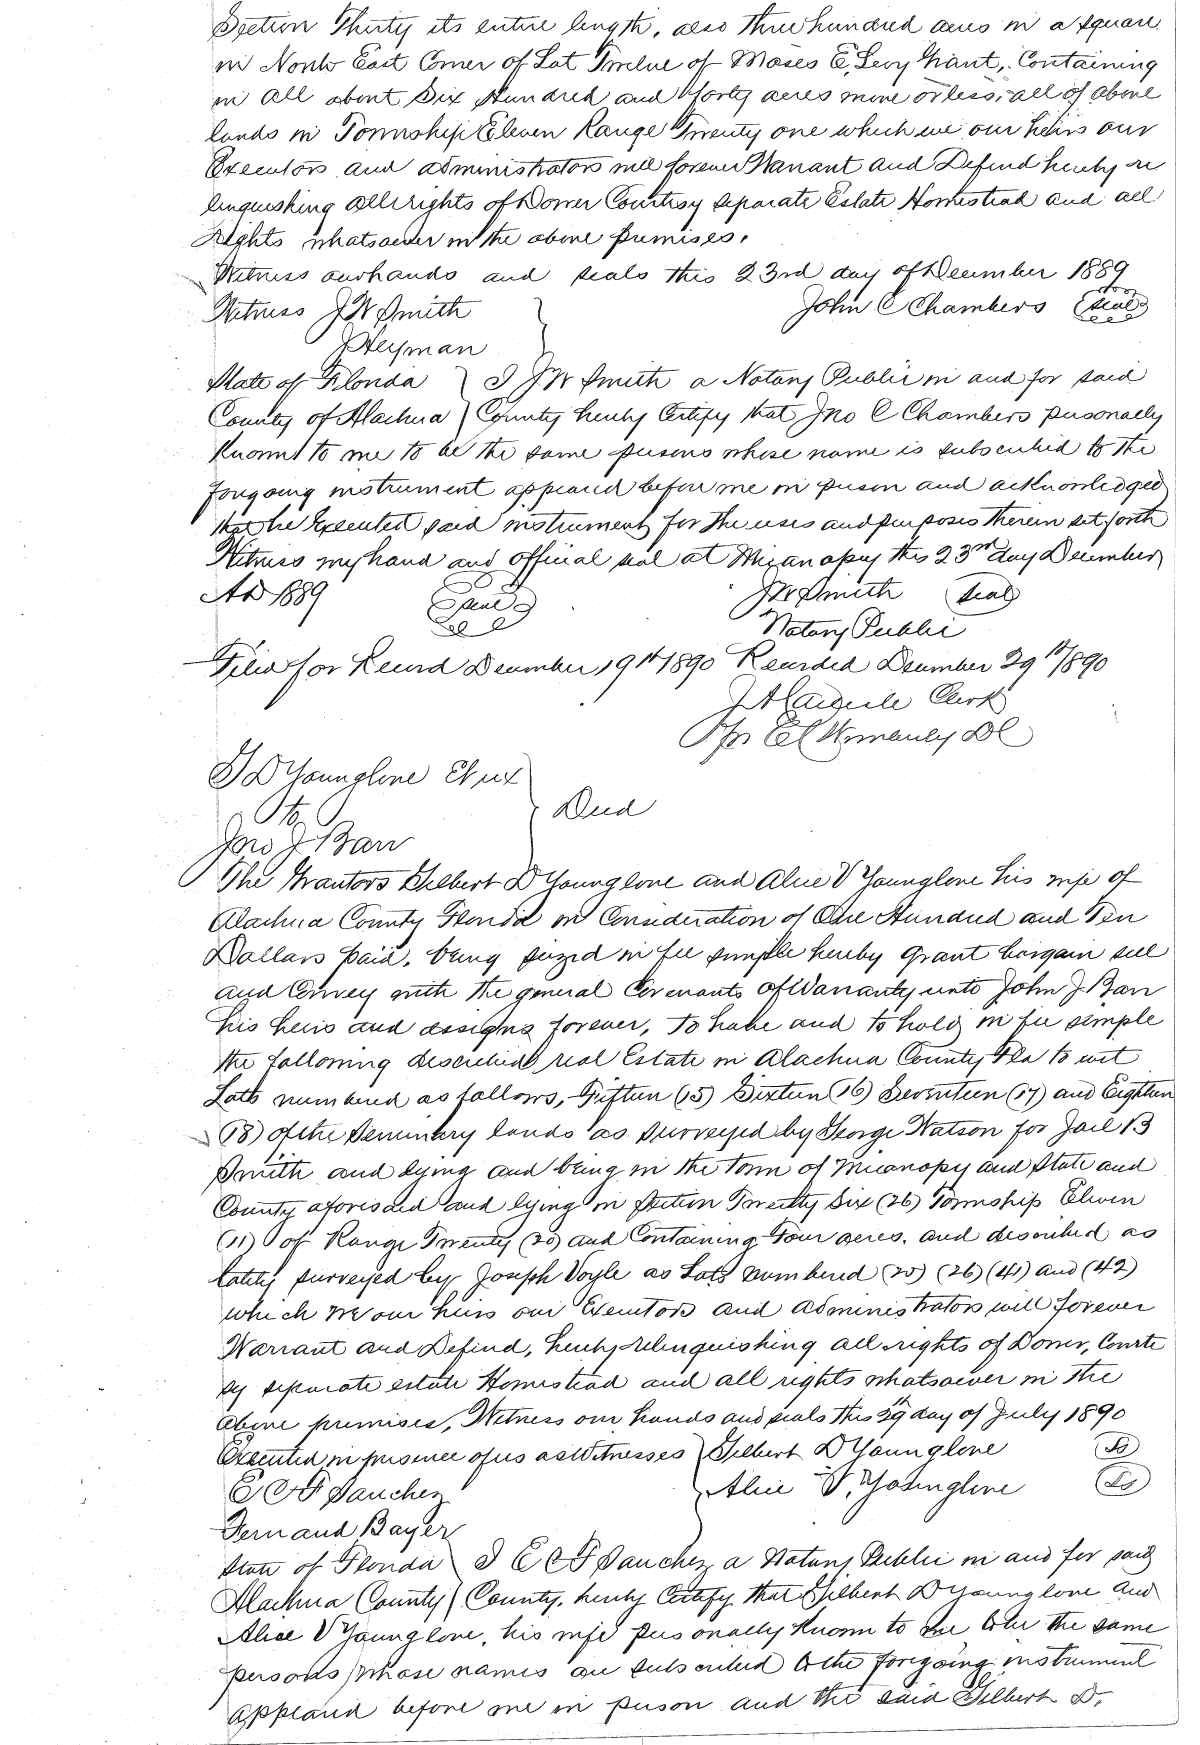 Section Thirty its entire length, also three hundred acres in a square
in North East Corner of Lot Twelve of Moses E. Levy Grant, Containing
in all about Six Hundred and forty acres more or less, all of above
lands in Township Eleven Range Twenty one which we our heirs our
Executors and administrators will forever Warrant and Defend hereby re
linquishing all rights of Dower Courtisy separate Estate Homestead and all
rights whatsoever in the above premises.
Witness our hands and seals this 23rd day of December 1889
Witness J W Smith } John C Chambers (seal)
J Heyman
State of Florida } I J W Smith a Notary Public in and for said
County of Alachua } County hereby Certify that Jno C Chambers personally
Known to me to be the same persons whose name is subscribed to the
foregoing instrument appeared before me in person and acknowledged
that he Executed said instrument for the uses and purposes therein set forth
Witness my hand and official seal at Micanopy this 23rd day December
AD 1889 (Seal) J W Smith (seal)
Notary Public
Filed for Record December 19th 1890 Recorded December 29th 1890
J A Carlisle Clerk
Per DC
G D Younglove Et ux }
To } Deed
Jno J Barr
The Grantors Gilbert D Younglove and Alice V Younglove his wife of
Alachua County Florida in Consideration of One Hundred and Ten
Dollars paid, being seized in fee simple hereby grant bargain sell
and Convey with the general Covenants of Warranty unto John J Barr
his heirs and assigns forever, To have and to hold in fee simple
the following described real Estate in Alachua County Fla to wit
Lots numbered as follows, Fifteen (15) Sixteen (16) Seventeen (17) and Eighteen
(18) of the Seminary lands as surveyed by George Watson for Jail B
Smith and lying and being in the town of Micanopy and State and
County aforesaid and lying in Section Twenty Six (26) Township Eleven
(11) of Range Twenty (20) and Containing Four acres. and described as
lately surveyed by Joseph Voyle as Lots numbered (25) (26) (41) and (42)
which we our heirs our Executors and administrators will forever
Warrant and Defend, hereby relinquishing all rights of Dower, Courte
sy separate estate Homestead and all rights whatsoever in the
above premises, Witness our hands and seals this 29th day of July 1890
Executed in presence of us as Witnesses } Gilbert D Younglove (Ls)
E C F Sanchez } Alice V. Younglove (Ls)
Fernand Bayer
State of Florida } I E C F Sanchez a Notary Public in and for said
Alachua County } County, hereby Certify that Gilbert D Younglove and
Alice V Younglove, his wife personally Known to me to be the same
persons whose names are subscribed to the foregoing instrument
appeared before me in person and the said Gilbert D.